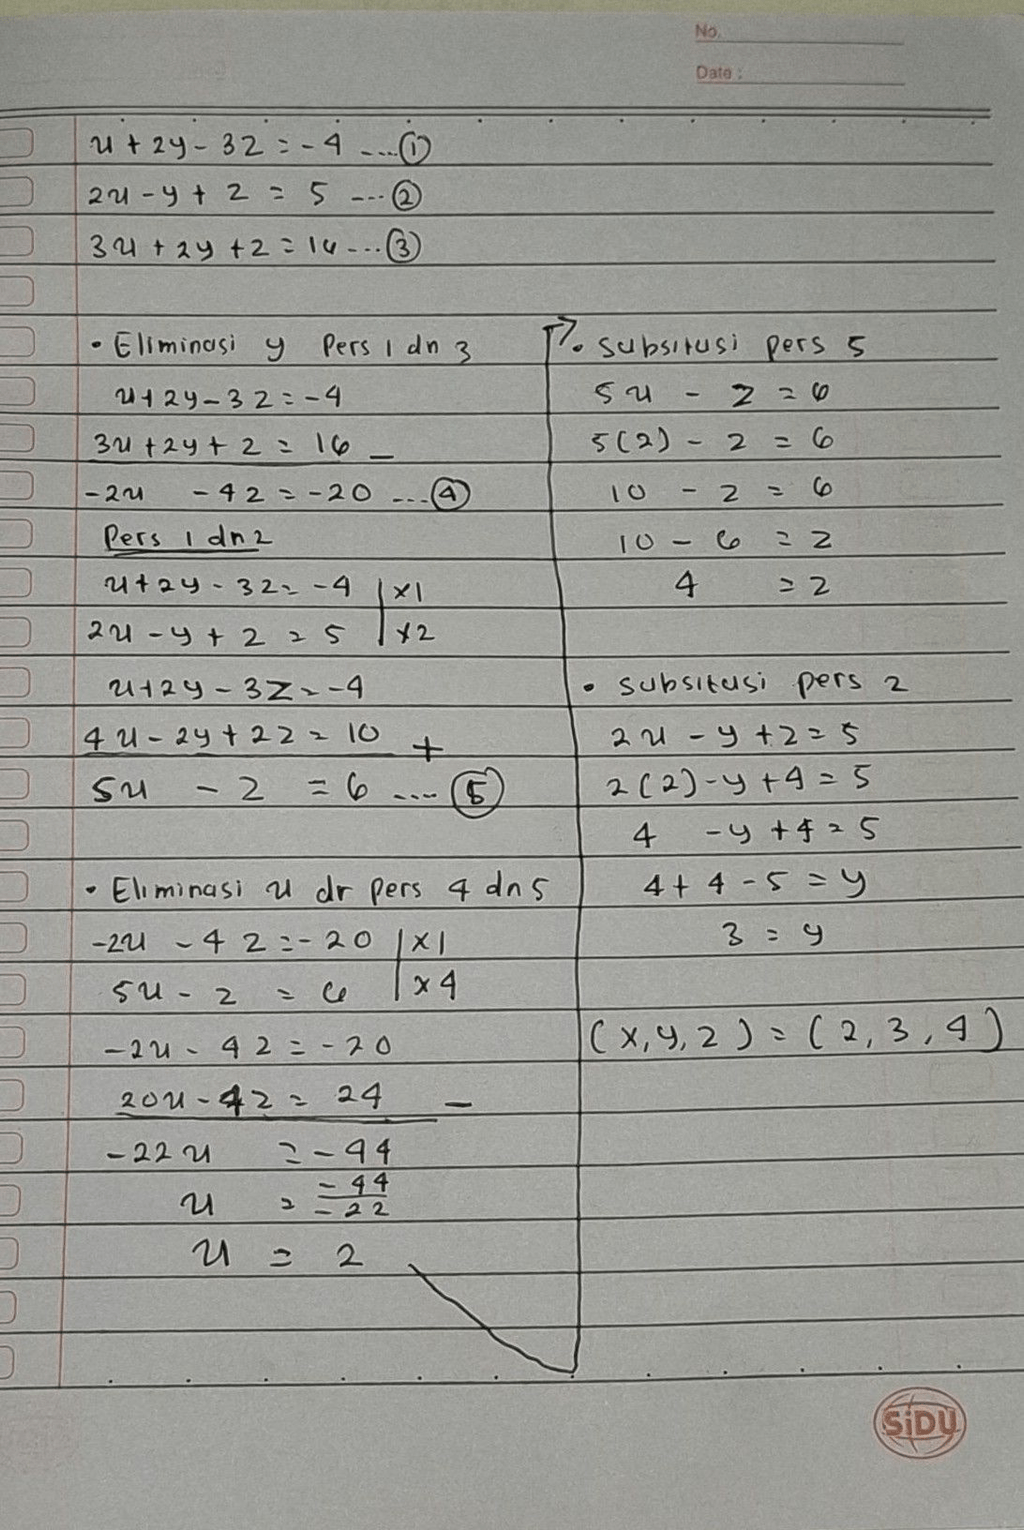 No.
Date :
x + 2y - 3z = -4 ....①
2x - y + z = 5 ....②
3x + 2y + z = 16 ....③
• Eliminasi y Pers 1 dn 3
x + 2y - 3z = -4
3x + 2y + z = 16 _
-2x - 4z = -20 ....④
Pers 1 dn 2
x + 2y - 3z = -4 | ×1
2x - y + z = 5 | ×2
x + 2y - 3z = -4
4x - 2y + 2z = 10 +
5x - z = 6 ....⑤
• Eliminasi x dr pers 4 dn 5
-2x - 4z = -20 | ×1
5x - z = 6 | ×4
-2x - 4z = -20
20x - 4z = 24 _
-22x = -44
x = -44/-22
x = 2
• Subsitusi pers 5
5x - z = 6
5(2) - z = 6
10 - z = 6
10 - 6 = z
4 = z
• Subsitusi pers 2
2x - y + z = 5
2(2) - y + 4 = 5
4 - y + 4 = 5
4 + 4 - 5 = y
3 = y
(x, y, z) = (2, 3, 4)
SiDU